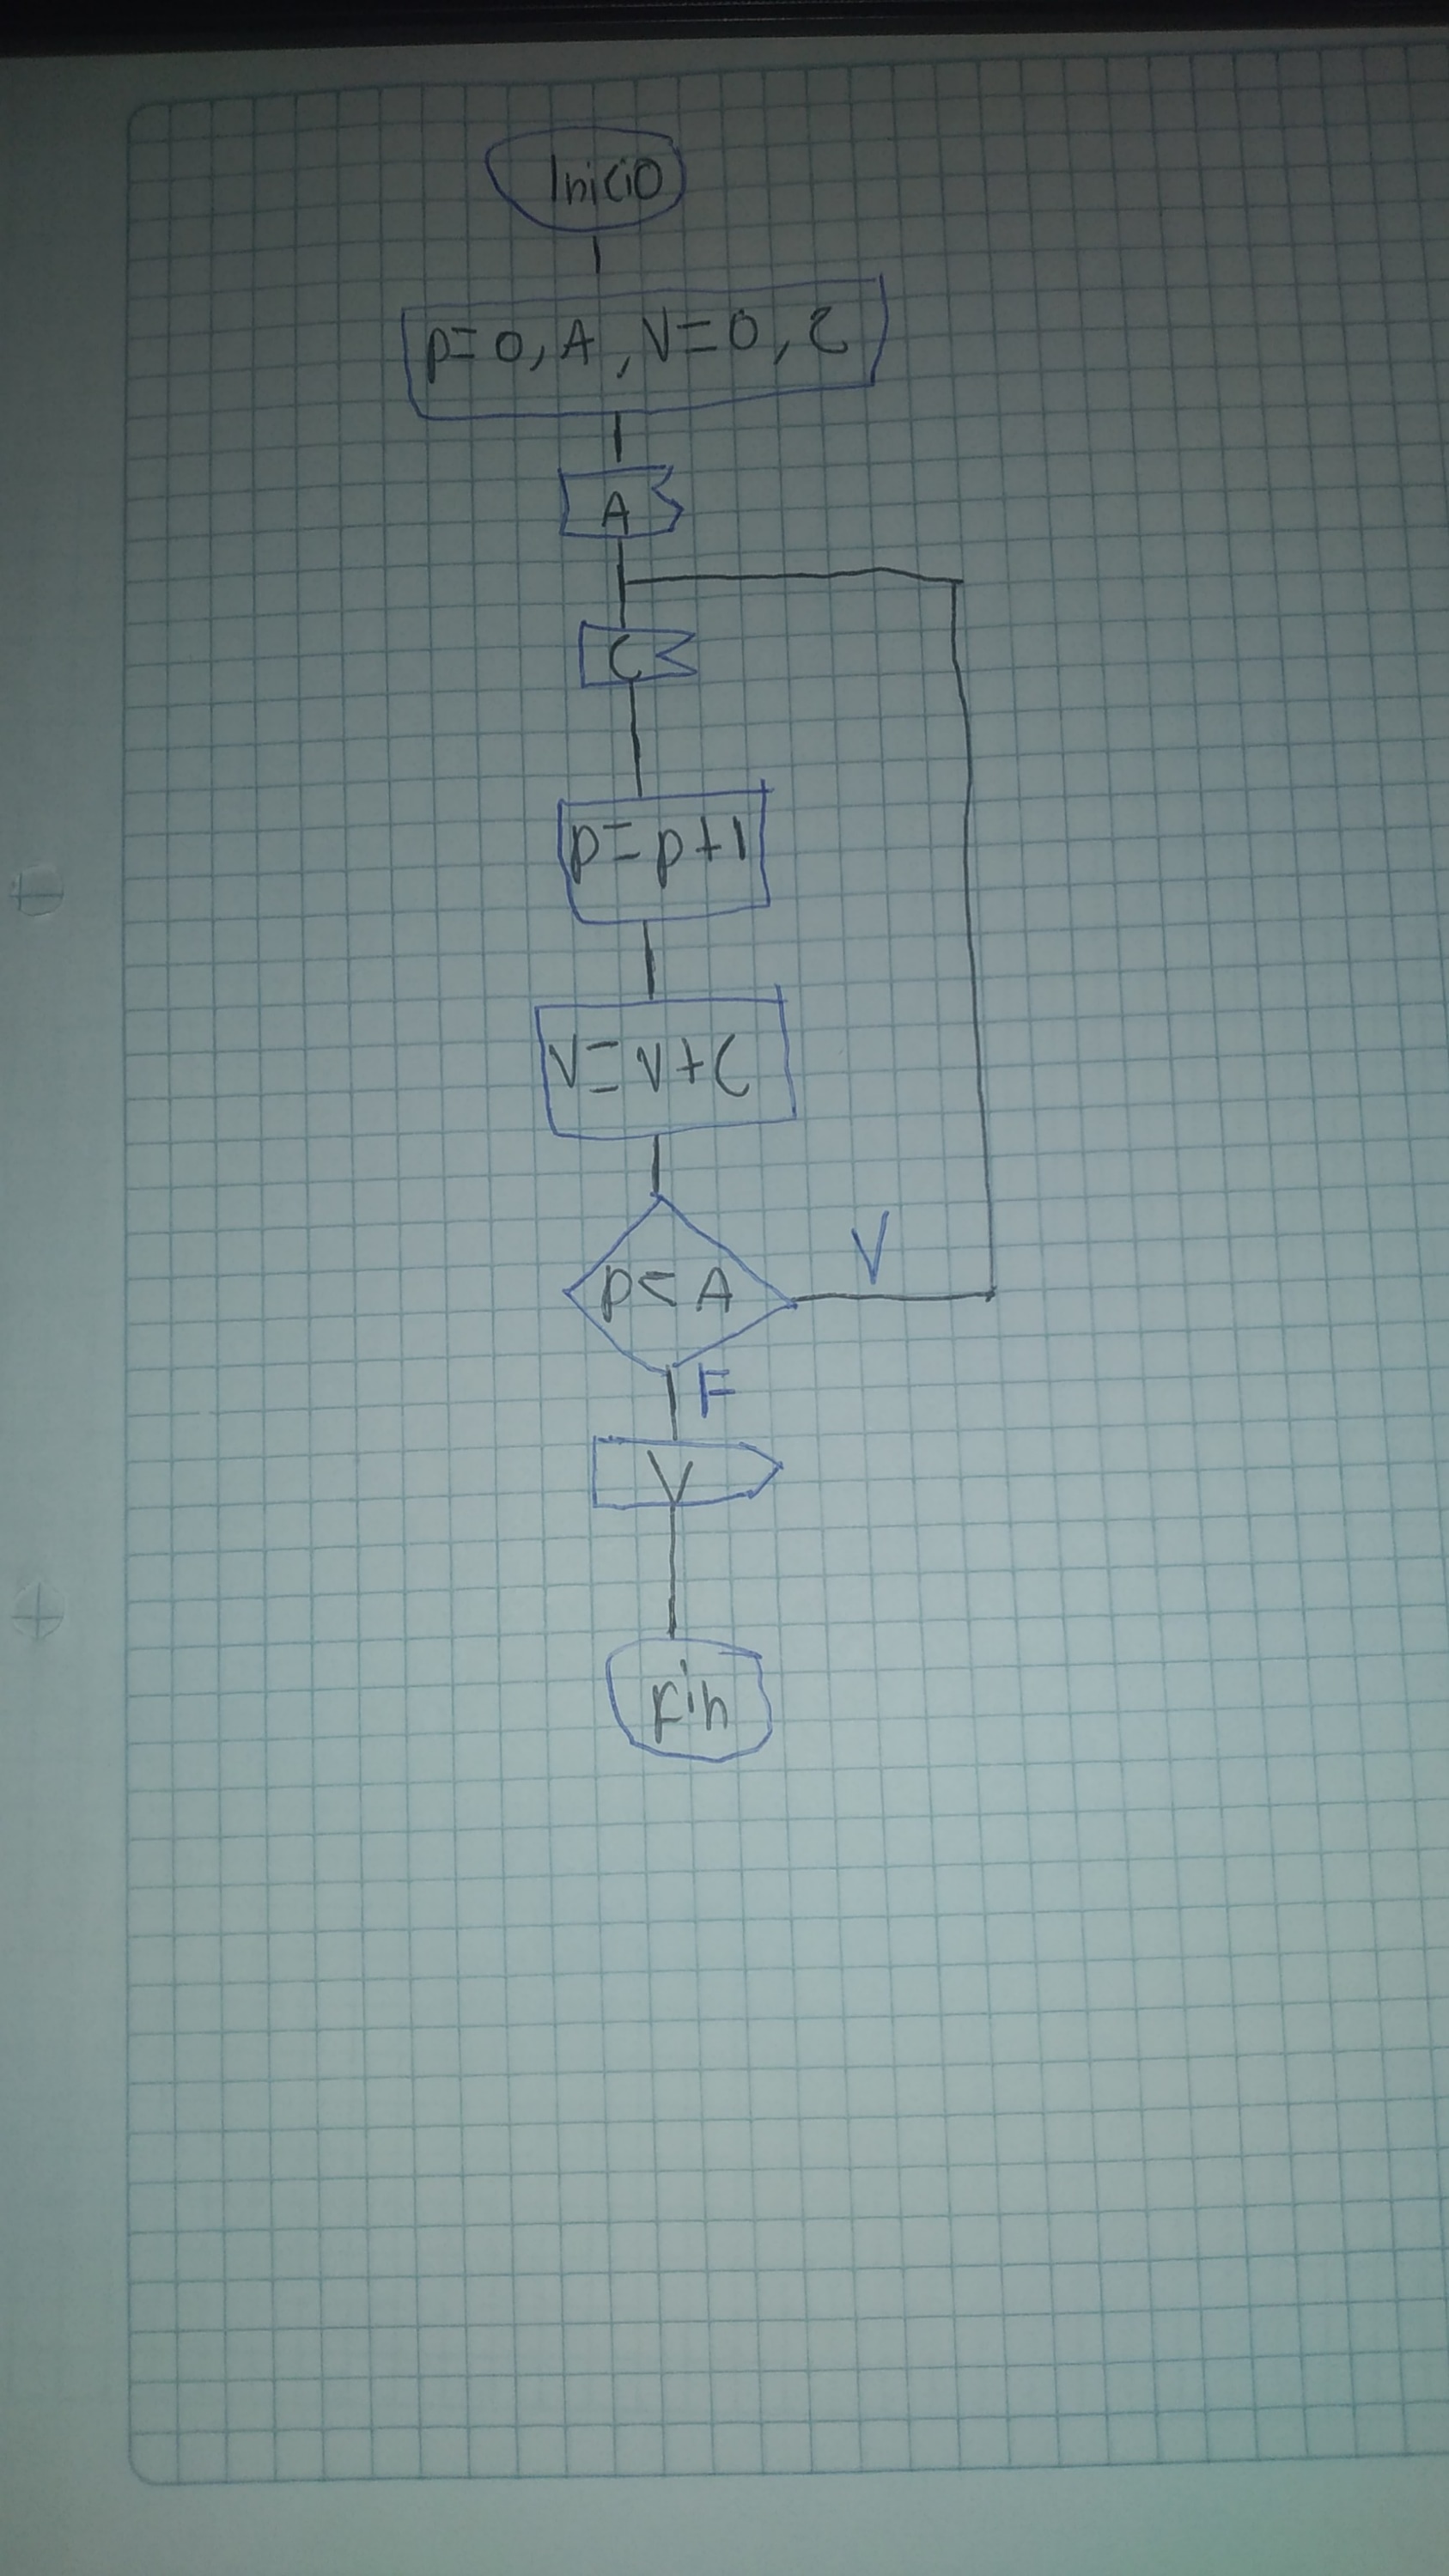 Inicio
p=0, A, V=0, C
A
C
p=p+1
V=V+C
p<A
V
F
V
Fin